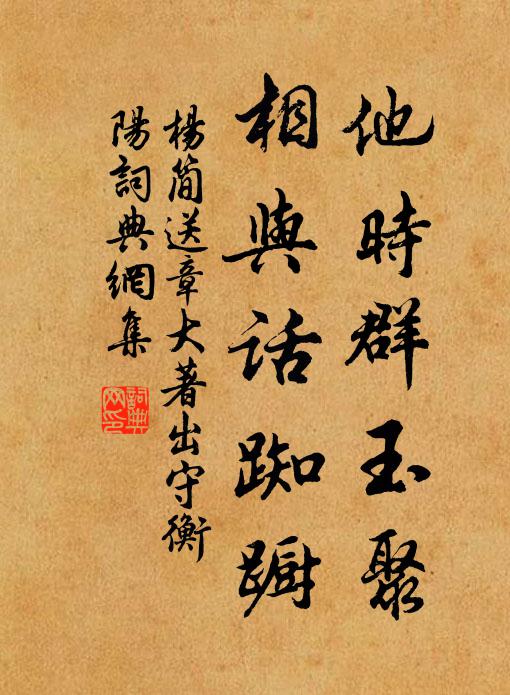 他時群玉聚
相與話踟躕
楊簡送章大著出守衡
陽詞典網集
詞典
网印